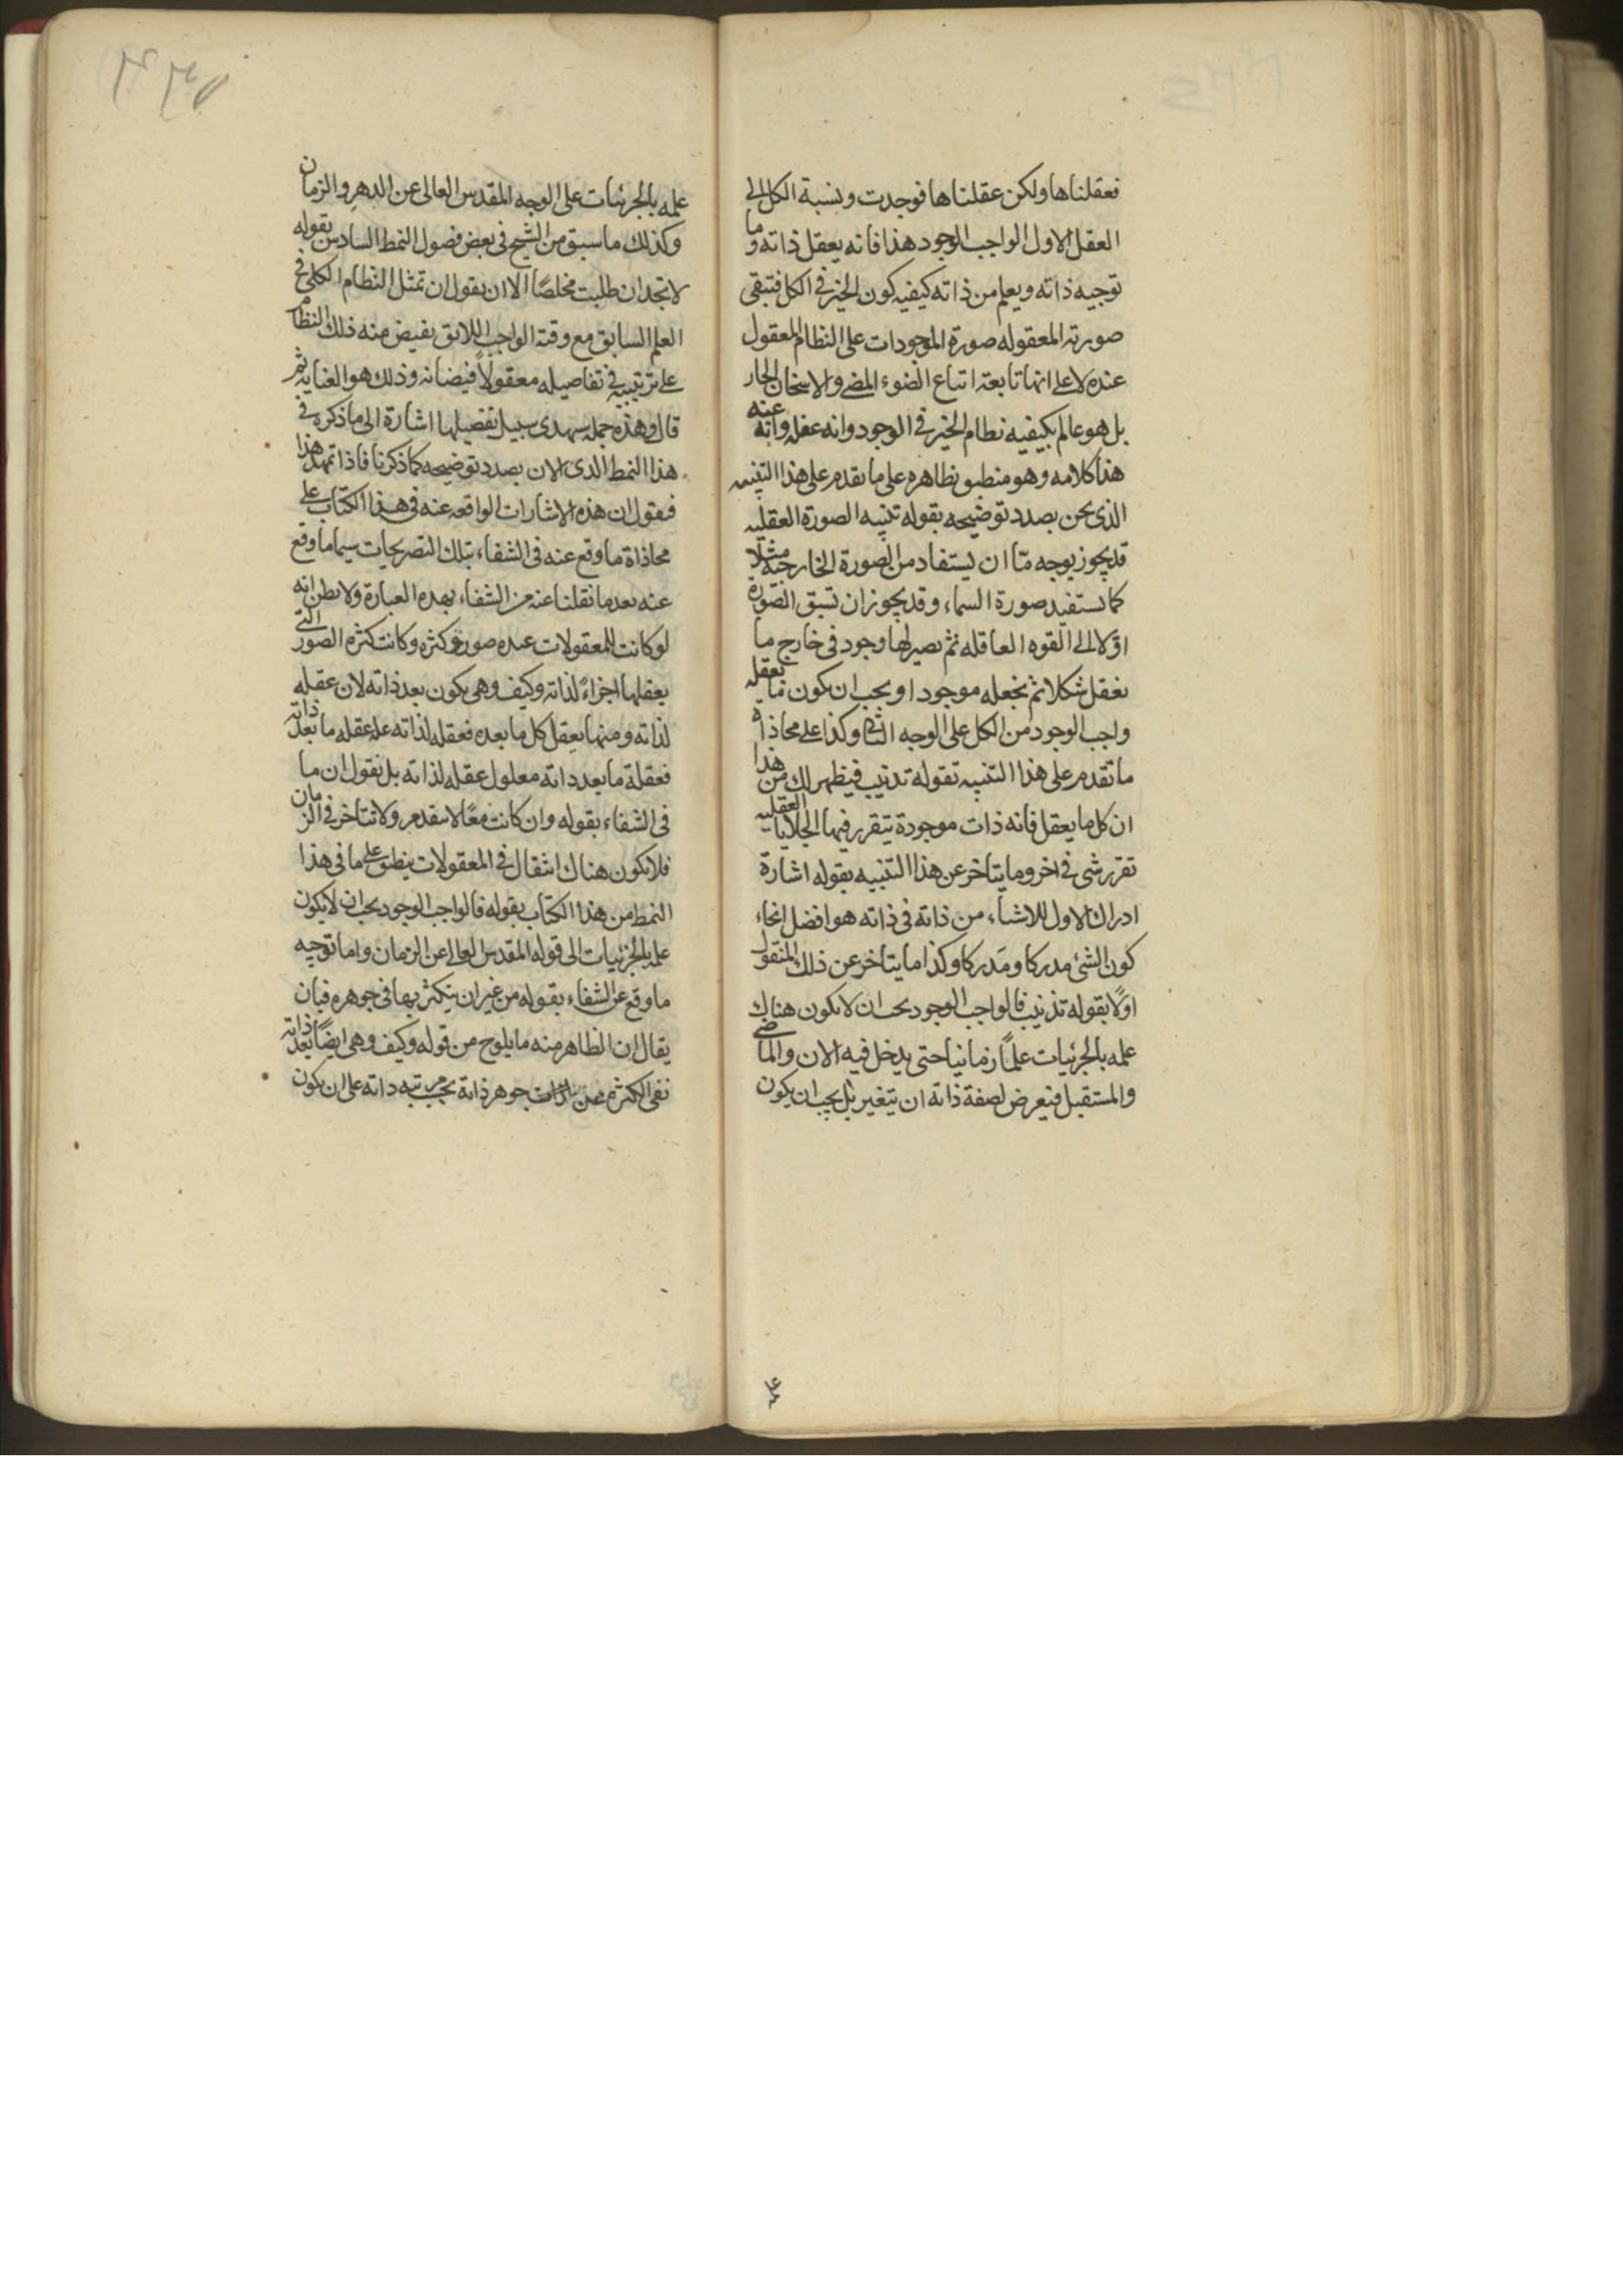 فعقلناها ولكن عقلناها فوجدت ونسبة الكل الى
العقل الاول الواجب الوجود هذا فانه يعقل ذاته وما
توجبه ذاته ويعلم من ذاته كيفيه كون الخير فى الكل فتبقى
صورته المعقوله صورة الموجودات على النظام المعقول
عنده لا على انها تابعته اتباع الضوء المضى والاسخان الحار
بل هو عالم بكيفيه نظام الخير فى الوجود وانه عنه
هذا كلامه وهو منطبق بظاهره على ما تقدم على هذا التنبيه
الذى نحن بصدد توضيحه بقوله تنبيه الصورة العقليه
قد يجوز بوجه مّا ان يستفاد من الصورة الخارجية مثلا
كما نستفيد صورة السماء وقد يجوز ان تسبق الصورة
اوّلا الى القوه العاقله ثم يصير لها وجود فى خارج ما
نعقل شكلا ثم نجعله موجودا ويجب ان يكون ما يعقله
واجب الوجود من الكل على الوجه الثانى وكذا على محاذاة
ما تقدم على هذا التنبيه بقوله تذنيب فيظهر لك من هذا
ان كل ما يعقل فانه ذات موجودة يتقرر فيها الجلايا العقليه
تقرر شى فى اخر وما يتاخر عن هذا التنبيه بقوله اشارة
ادراك الاول للاشياء من ذاته فى ذاته هو افضل انحاء
كون الشئ مدركا ومدركا وكذا ما يتاخر عن ذلك المنقول
اولًا بقوله تذنيب فالواجب الوجود يجب ان لا يكون هناك
علمه بالجزئيات علمًا زمانيا حتى يدخل فيه الان والماضى
والمستقبل فيعرض لصفة ذاته ان تتغير بل يجب ان يكون
علمه
علمه بالجزئيات على الوجه المقدس العالى عن الدهر والزمان
وكذلك ما سبق من الشيخ فى بعض فصول النمط السادس بقوله
لا تجد ان طلبت مخلصًا الا ان يقول ان تمثل النظام الكلى فى
العلم السابق مع وقته الواجب اللائق يفيض منه ذلك النظام
على ترتيبه فى تفاصيله معقولًا فيضانه وذلك هو العنايه ثم
قال وهذه جمله سيهدى سبيل تفصيلها اشارة الى ما ذكره فى
هذا النمط الذى الان بصدد توضيحه كما ذكرنا فاذا تمهد هذا
فنقول ان هذه الاشارات الواقعه عنه فى هذا الكتاب على
محاذاة ما وقع عنه فى الشفاء بتلك التصريحات سيما ما وقع
عنه بعد ما نقلنا عنه من الشفاء بهذه العبارة ولا يظن انه
لو كانت للمعقولات عنده صور وكثره وكانت كثره الصور التى
يعقلها اجزاءً لذاته وكيف وهى يكون بعد ذاته لان عقله
لذاته ومنها يعقل كل ما بعده فعقله لذاته علة عقله ما بعد ذاته
فعقله ما بعد ذاته معلول عقله لذاته بل نقول ان ما
فى الشفاء بقوله وان كانت معًا لا تتقدم ولا تتاخر فى الزمان
فلا يكون هناك انتقال فى المعقولات ينطبق على ما فى هذا
النمط من هذا الكتاب بقوله فالواجب الوجود يجب ان لا يكون
علمه بالجزئيات الى قوله المقدس العالى عن الزمان واما توجيه
ما وقع عن الشفاء بقوله من غير ان يتكثر بها فى جوهره فبان
يقال ان الظاهر منه ما يلوح من قوله وكيف وهى ايضًا بعد ذاته
نفى الكثره جوهر ذاته بحسب مرتبه ذاته على ان يكون